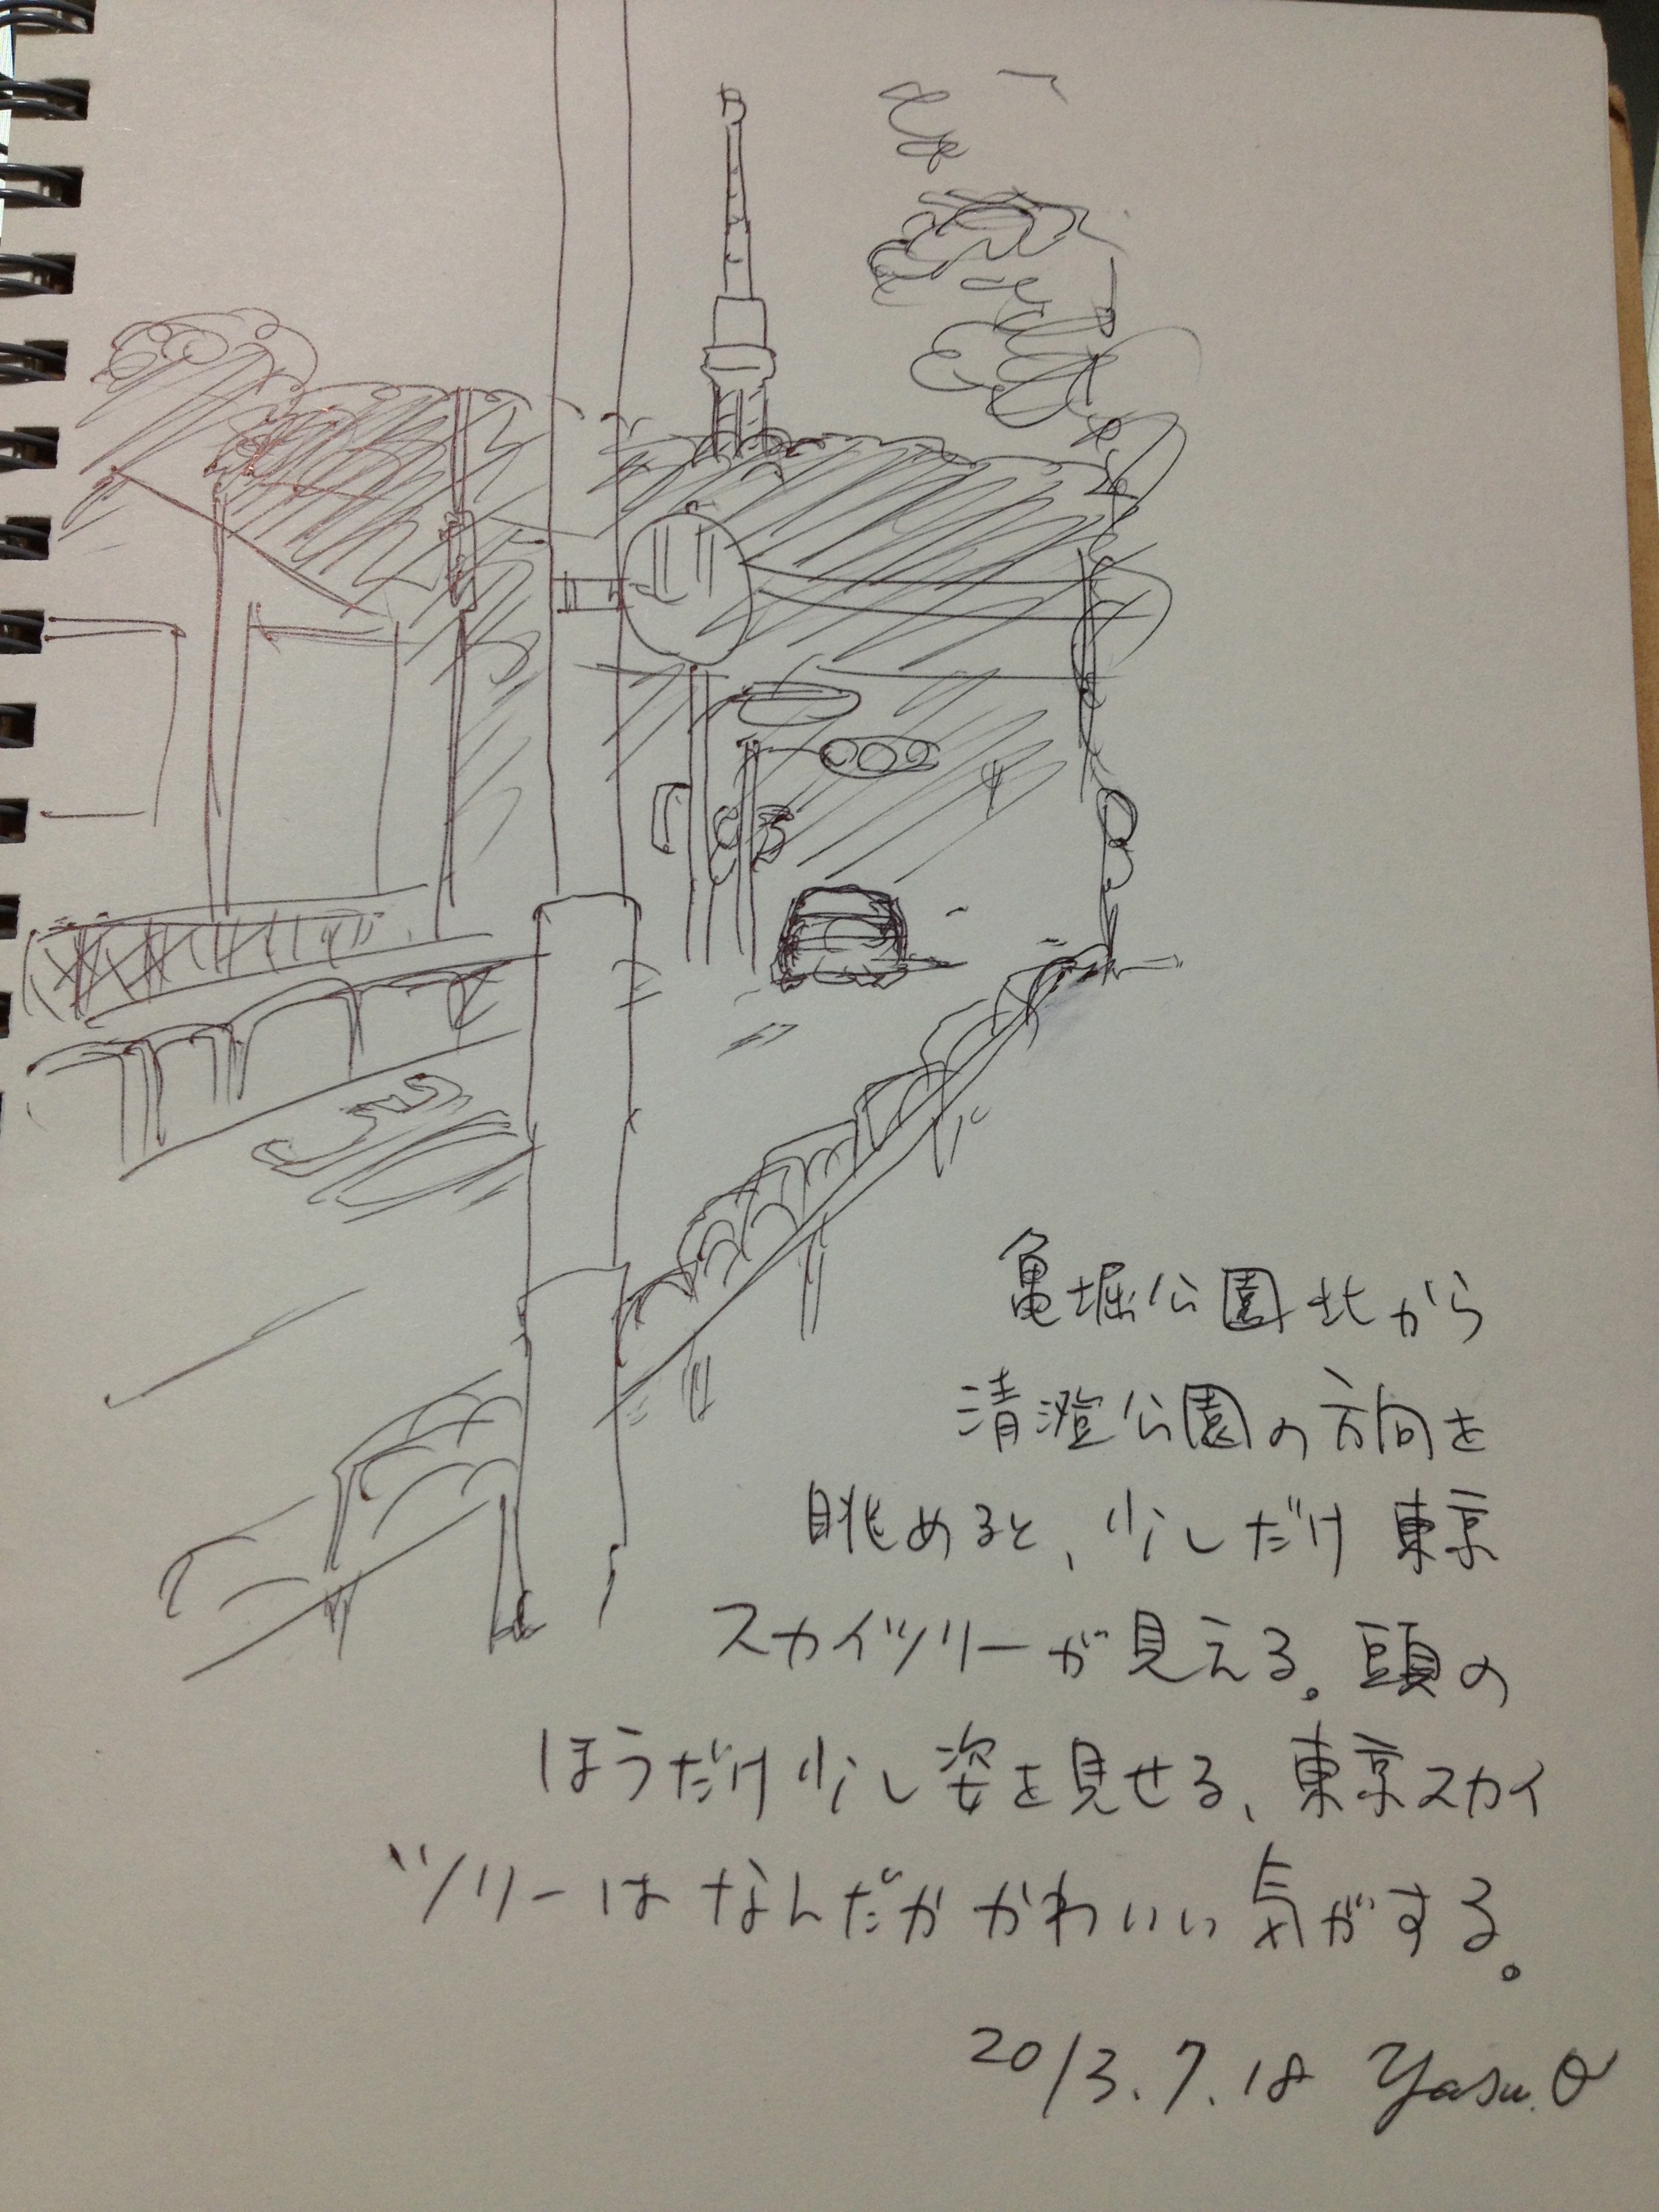 亀堀公園北から
清澄公園の方向を
眺めると、少しだけ東京
スカイツリーが見える。頭の
ほうだけ少し姿を見せる、東京スカイ
ツリーはなんだかかわいい気がする。
2013.7.18 Yasu.O